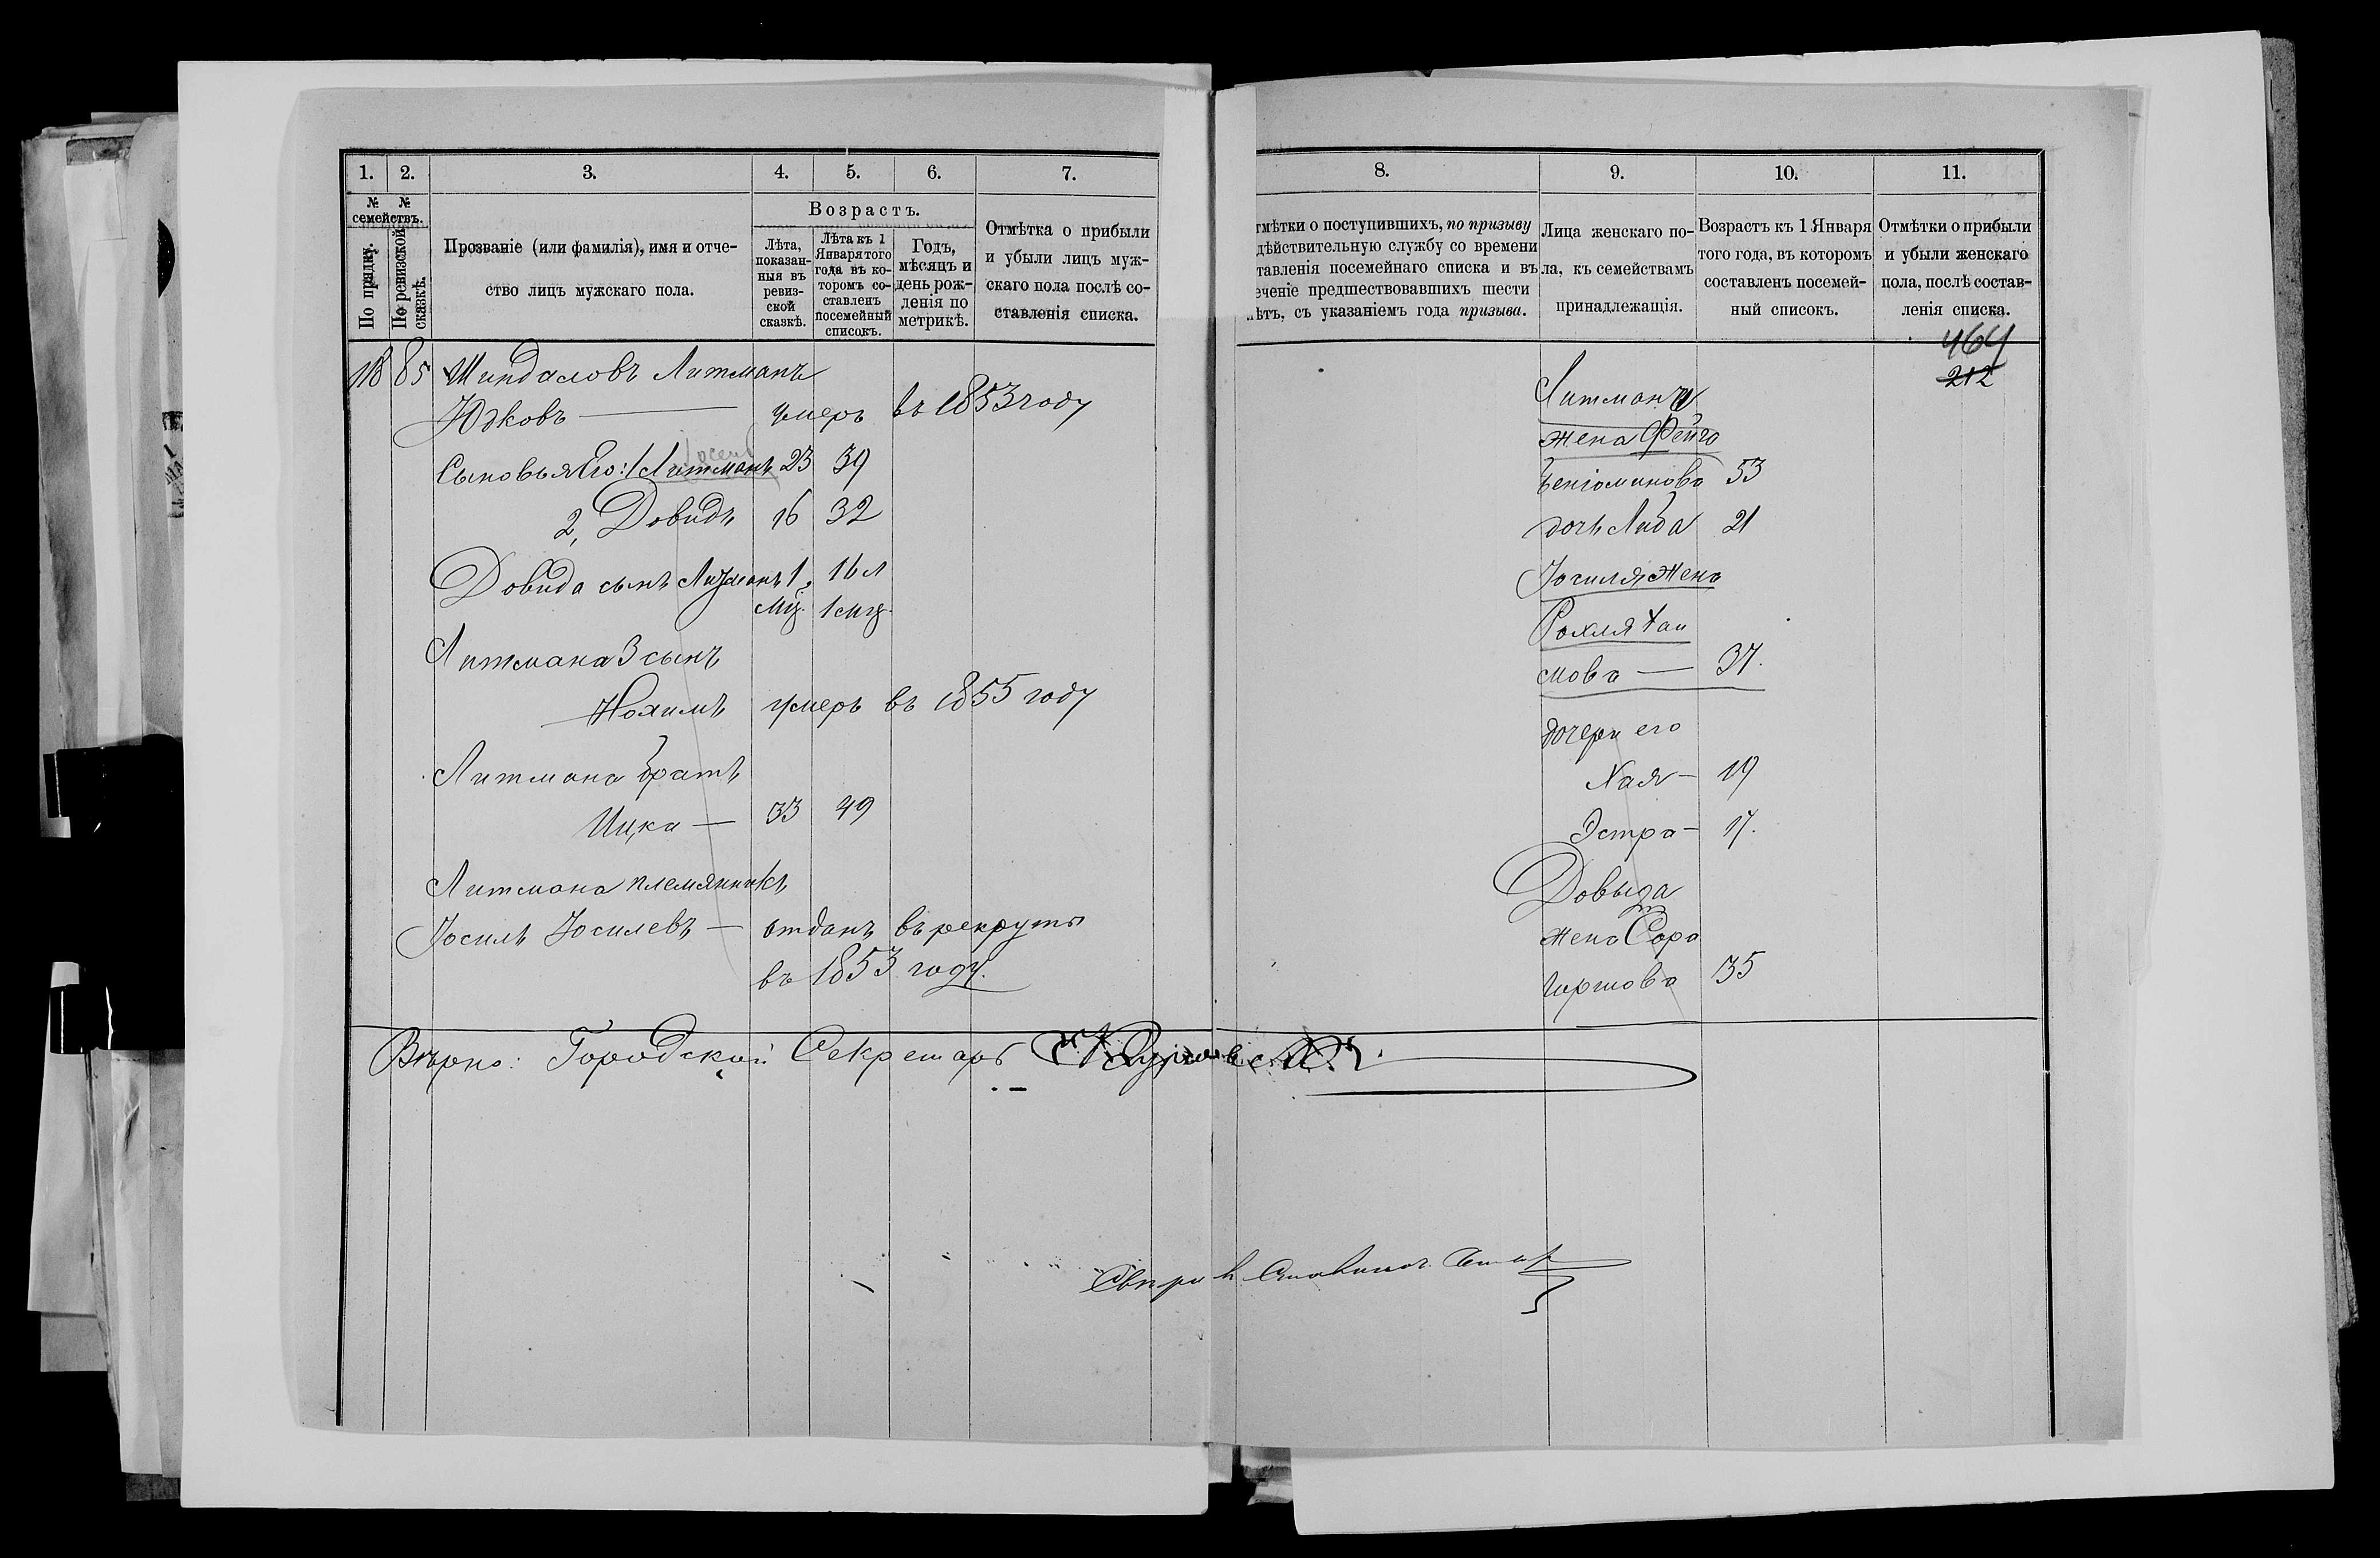 1. 2. 3. 4. 5. 6. 7.
№ семействъ. №
По прядку.
По ревизской сказкѣ.
Прозваніе (или фамилія), имя и отче-
ство лицъ мужскаго пола.
Возрастъ.
Лѣта,
показан-
ныя въ
ревиз-
ской
сказкѣ.
Лѣта къ 1
Января того
года въ ко-
торомъ со-
ставленъ
посемейный
списокъ.
Годъ,
мѣсяцъ и
день рож-
денія по
метрикѣ.
Отмѣтка о прибыли
и убыли лицъ муж-
скаго пола послѣ со-
ставленія списка.
118 85 Шиндаловъ Литманъ
Юдковъ — умеръ въ 1853 году
Сыновья Его: 1 Литманъ 23 39
2, Довидъ 16 32
Довида сынъ Литманъ 1. 16 л
мц. 1 мц.
Литмана 3 сынъ
Нохимъ умеръ въ 1855 году
Литмана братъ
Ицка — 33 49
Литмана племянникъ
Іосиль Іосилевъ — отданъ въ рекруты
въ 1853 году.
8. 9. 10. 11.
тмѣтки о поступившихъ, по призыву
дѣйствительную службу со времени
тавленія посемейнаго списка и въ
еченіе предшествовавшихъ шести
лѣтъ, съ указаніемъ года призыва.
Лица женскаго по-
ла, къ семействамъ
принадлежащія.
Возрастъ къ 1 Января
того года, въ которомъ
составленъ посемей-
ный списокъ.
Отмѣтки о прибыли
и убыли женскаго
пола, послѣ состав-
ленія списка.
464
212
Литмана
жена Фейга
Беніоминова 53
дочь Либа 21
Іосиля жена
Рохля Хаи
мова — 37.
дочери его
Хая — 19
Эстра — 17.
Довыда
жена Сора
Гиршова 35
Вѣрно: Городской Секретарь